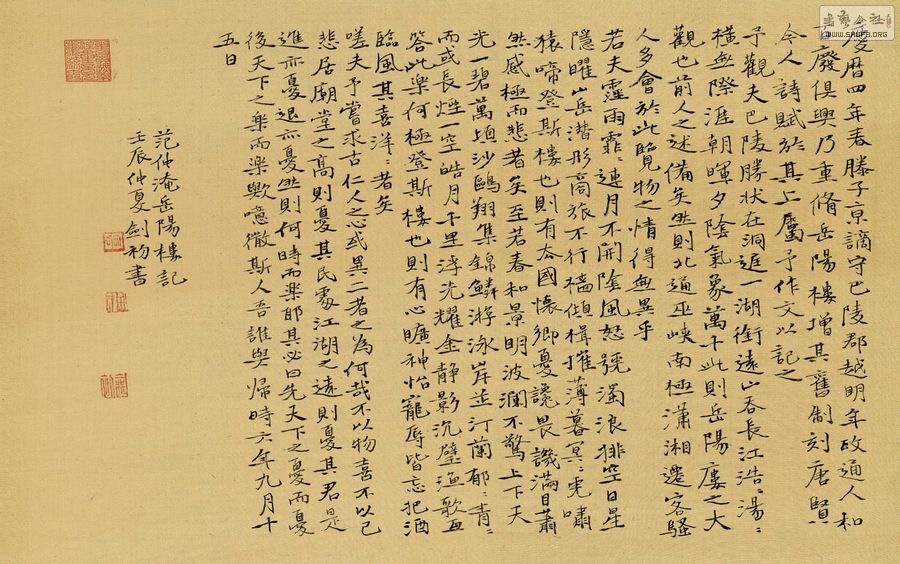 慶曆四年春滕子京謫守巴陵郡越明年政通人和
廢俱興乃重脩岳陽樓增其舊制刻唐賢
今人詩賦於其上屬予作文以記之
予觀夫巴陵勝狀在洞庭一湖銜遠山吞長江浩:湯:
橫無際涯朝暉夕陰氣象萬千此則岳陽樓之大
觀也前人之述備矣然則北通巫峽南極瀟湘遷客騷
人多會於此覽物之情得無異乎
若夫霪雨霏:連月不開陰風怒號濁浪排空日星
隱曜山岳潛形商旅不行檣傾楫摧薄暮冥:虎嘯
猿啼登斯樓也則有去國懷鄉憂讒畏譏滿目蕭
然感極而悲者矣至若春和景明波瀾不驚上下天
光一碧萬頃沙鷗翔集錦鱗游泳岸芷汀蘭郁:青:
而或長煙一空皓月千里浮光耀金靜影沉璧漁歌互
答此樂何極登斯樓也則有心曠神怡寵辱皆忘把酒
臨風其喜洋:者矣
嗟夫予嘗求古仁人之心或異二者之為何哉不以物喜不以己
悲居廟堂之高則憂其民處江湖之遠則憂其君是
進亦憂退亦憂然則何時而樂耶其必曰先天下之憂而憂
後天下之樂而樂歟噫微斯人吾誰與歸時六年九月十
五日
范仲淹岳陽樓記
壬辰仲夏劍初書